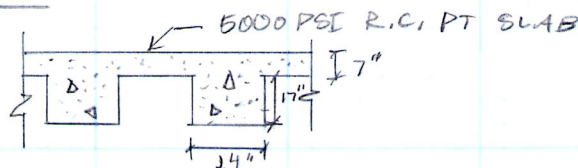 5000 PSI R.C. PT SLAB
7"
17"
24"